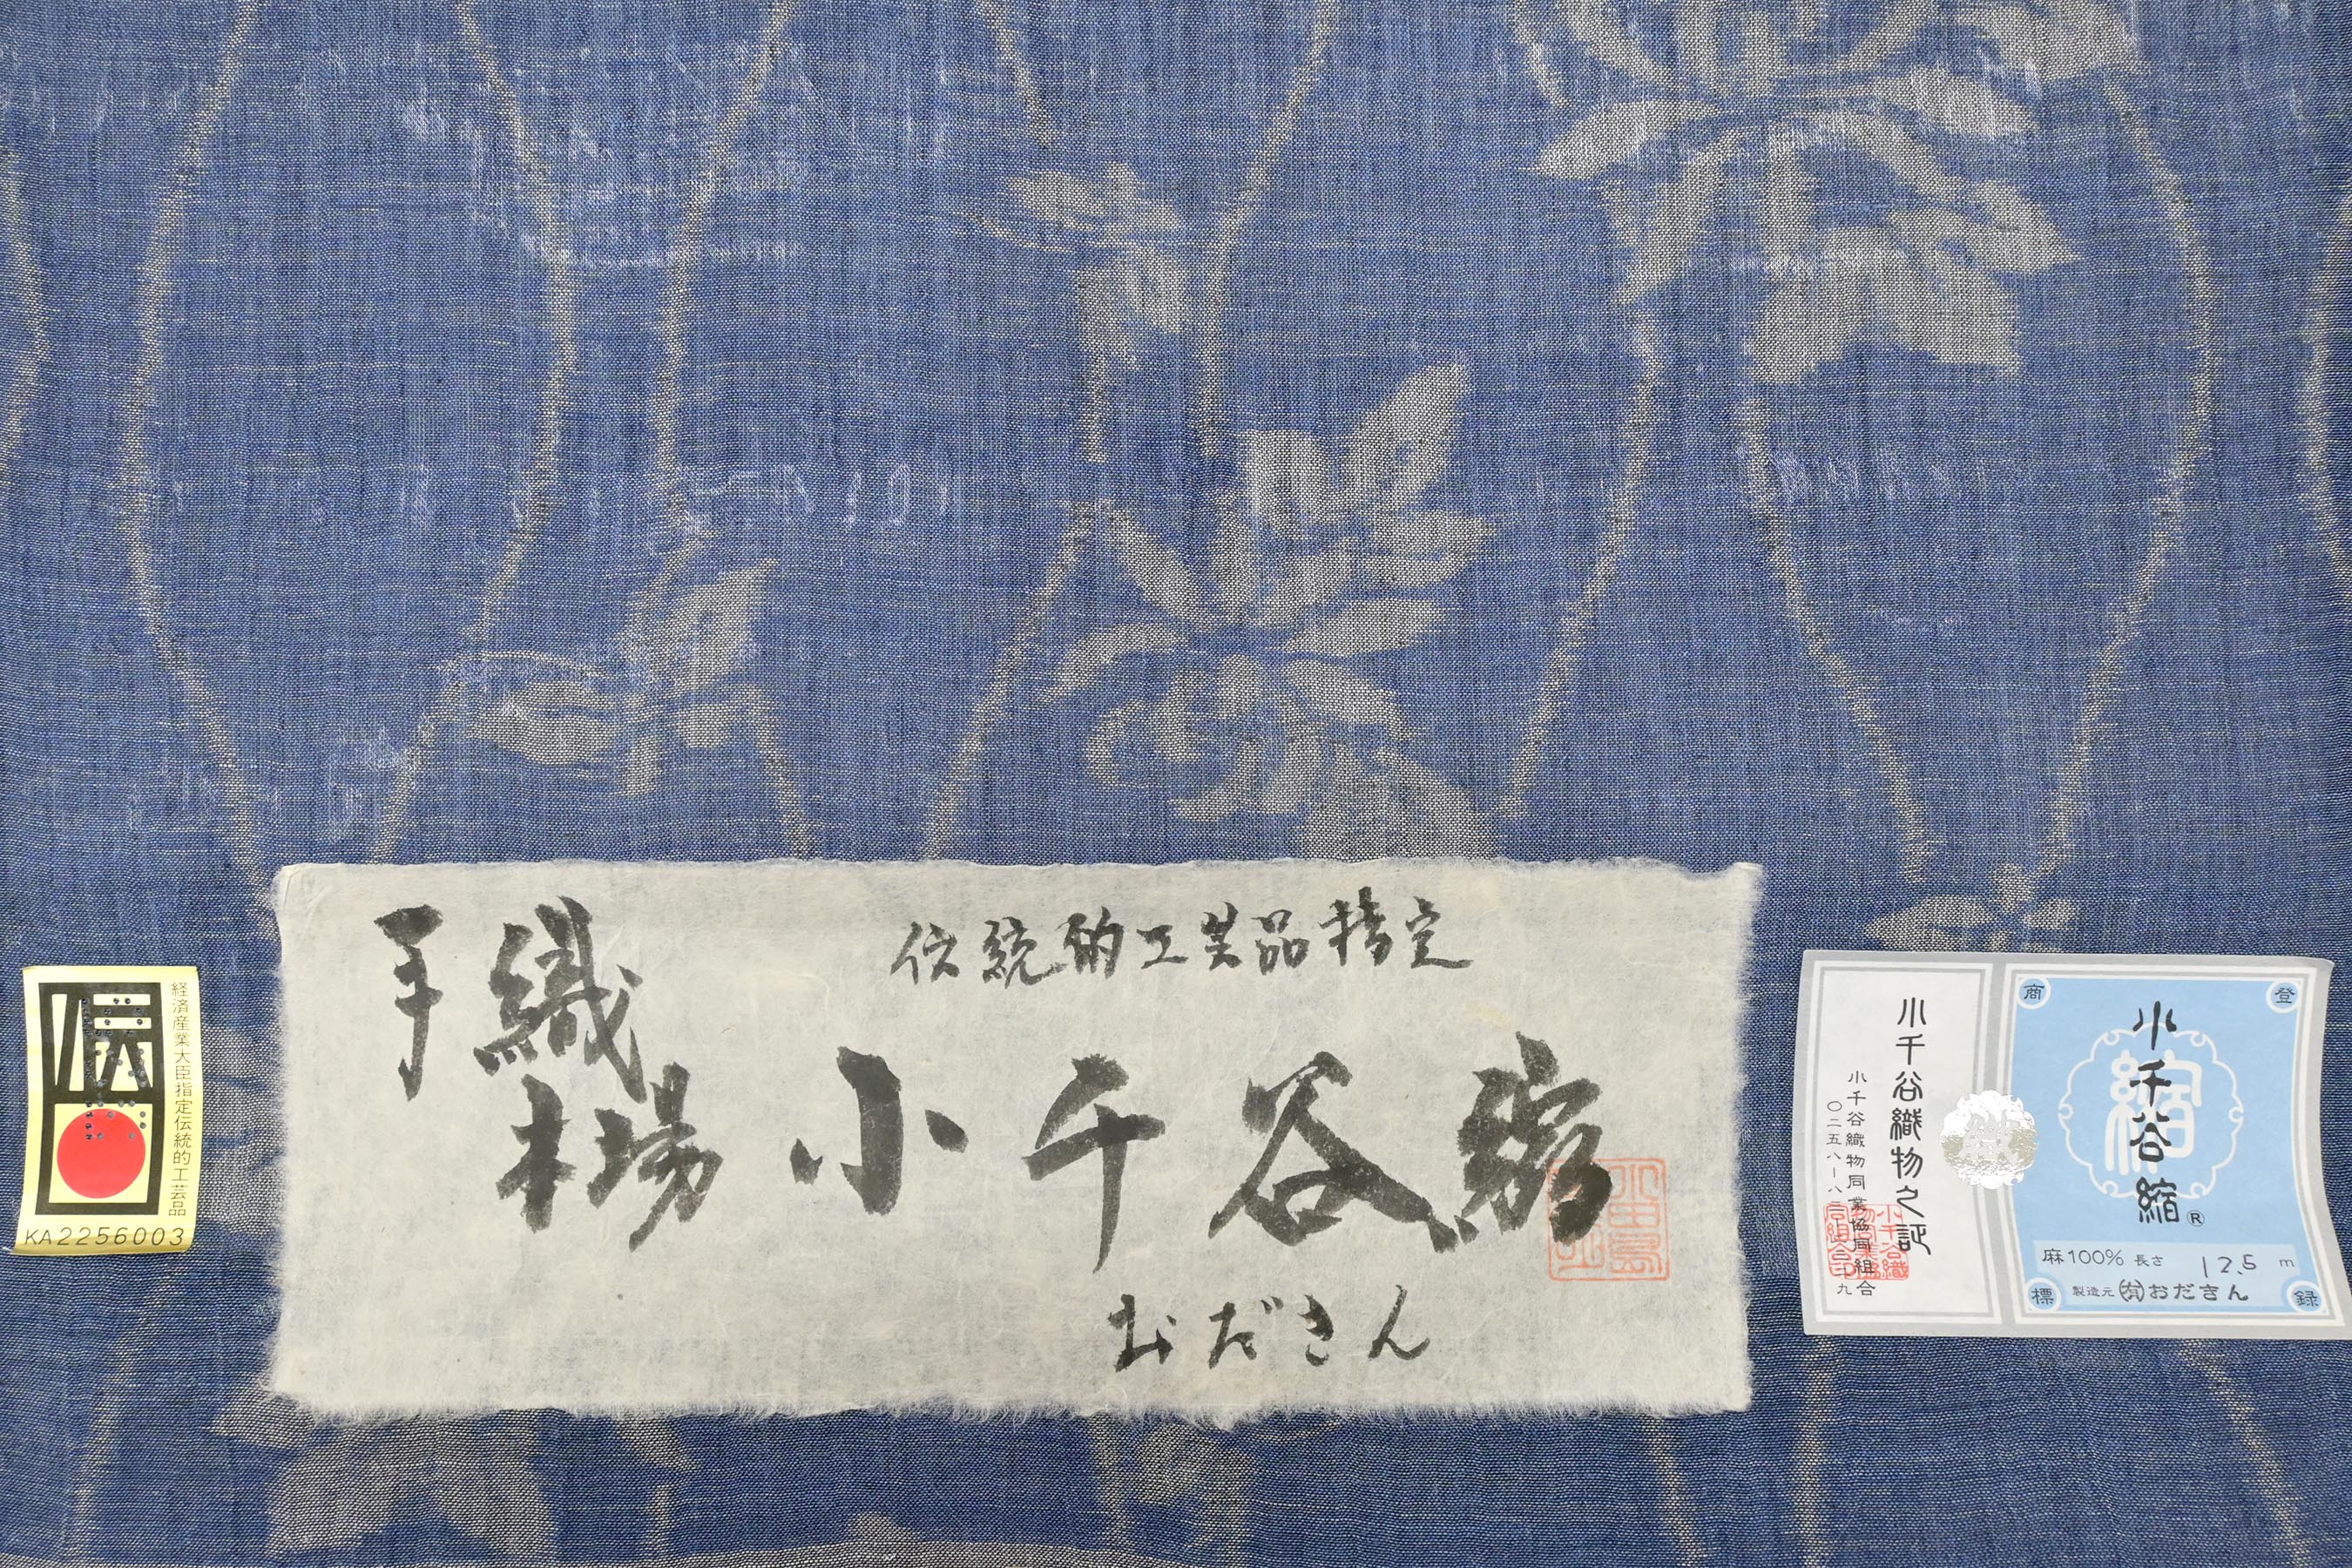 伝
経済産業大臣指定伝統的工芸品
KA2256003
伝統的工芸品指定
手織
本場小千谷縮
おだきん
小千谷織物之証
小千谷織物同業協同組合
商
登
標
録
縮
小千谷縮®
麻100% 長さ 12.5 m
製造元 (有)おだきん